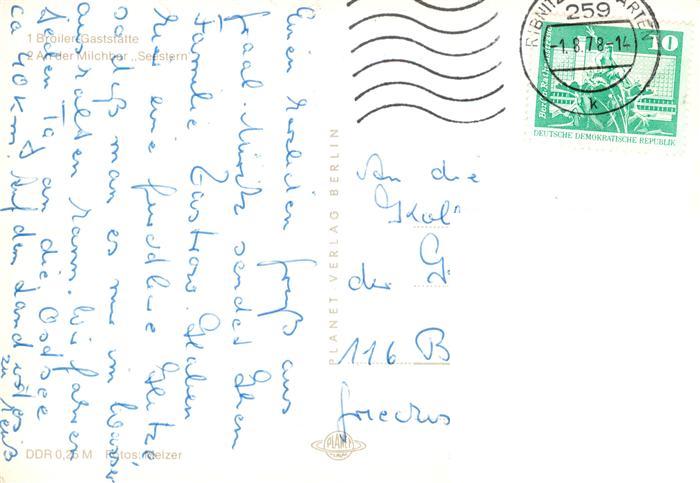 1 Broiler-Gaststätte
2 An der Milchbar „Seestern"
Einen herzlichen Gruß aus
Graal-Müritz sendet Ihnen
Familie
Hier eine furchtbare Hitze
so daß man es nur im Wasser
aushalten kann. Wir fahren
jeden Tag an die Ostsee
ca 40 km. Auf dem Land ist es
zu heiß
DDR 0,25 M Fotos: Melzer
PLANET VERLAG BERLIN
PLANET
259
-1.8.78-14
k
10
DEUTSCHE DEMOKRATISCHE REPUBLIK
An die
der G
116 B